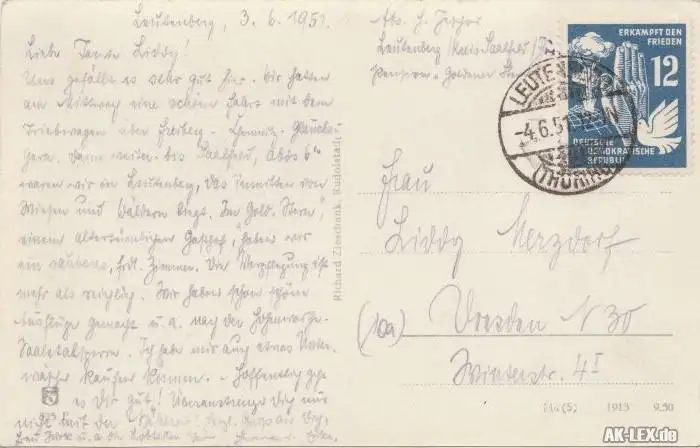 Leutenberg, 3.6.1951.
Liebe Tante Liddy!
Uns gefällt es sehr gut hier. Wir hatten
am Mittwoch eine schöne Fahrt mit dem
Triebwagen über Freiberg - Chemnitz - Glauchau
Gera. Dann weiter bis Saalfeld, abds 6
waren wir in Leutenberg, das inmitten von
Wiesen und Wäldern liegt. Im Gold. Stern,
einem altertümlichen Gasthof, haben wir
ein sauberes, frdl. Zimmer. Die Verpflegung ist
mehr als reichlich. Wir haben schon schöne
Ausflüge gemacht u. a. nach der Hohenwarte-
Saaletalsperre. Ich habe mir auch etwas Unter-
wäsche kaufen können. - Hoffentlich geht
es Dir gut! Überanstrenge Dich nur
nicht mit der
Richard Zieschank, Rudolstadt
Abs. H.
Leutenberg / Kreis Saalfeld / Th
Pension "Goldener Stern
ERKÄMPFT DEN
FRIEDEN
12
DEUTSCHE
DEMOKRATISCHE
REPUBLIK
LEUTENBERG
-4.6.51
(THÜRING)
Frau
Liddy Merzdorf
(10a) Dresden N 30
Winterstr. 4 I
1913 9.50
AK-LEX.de